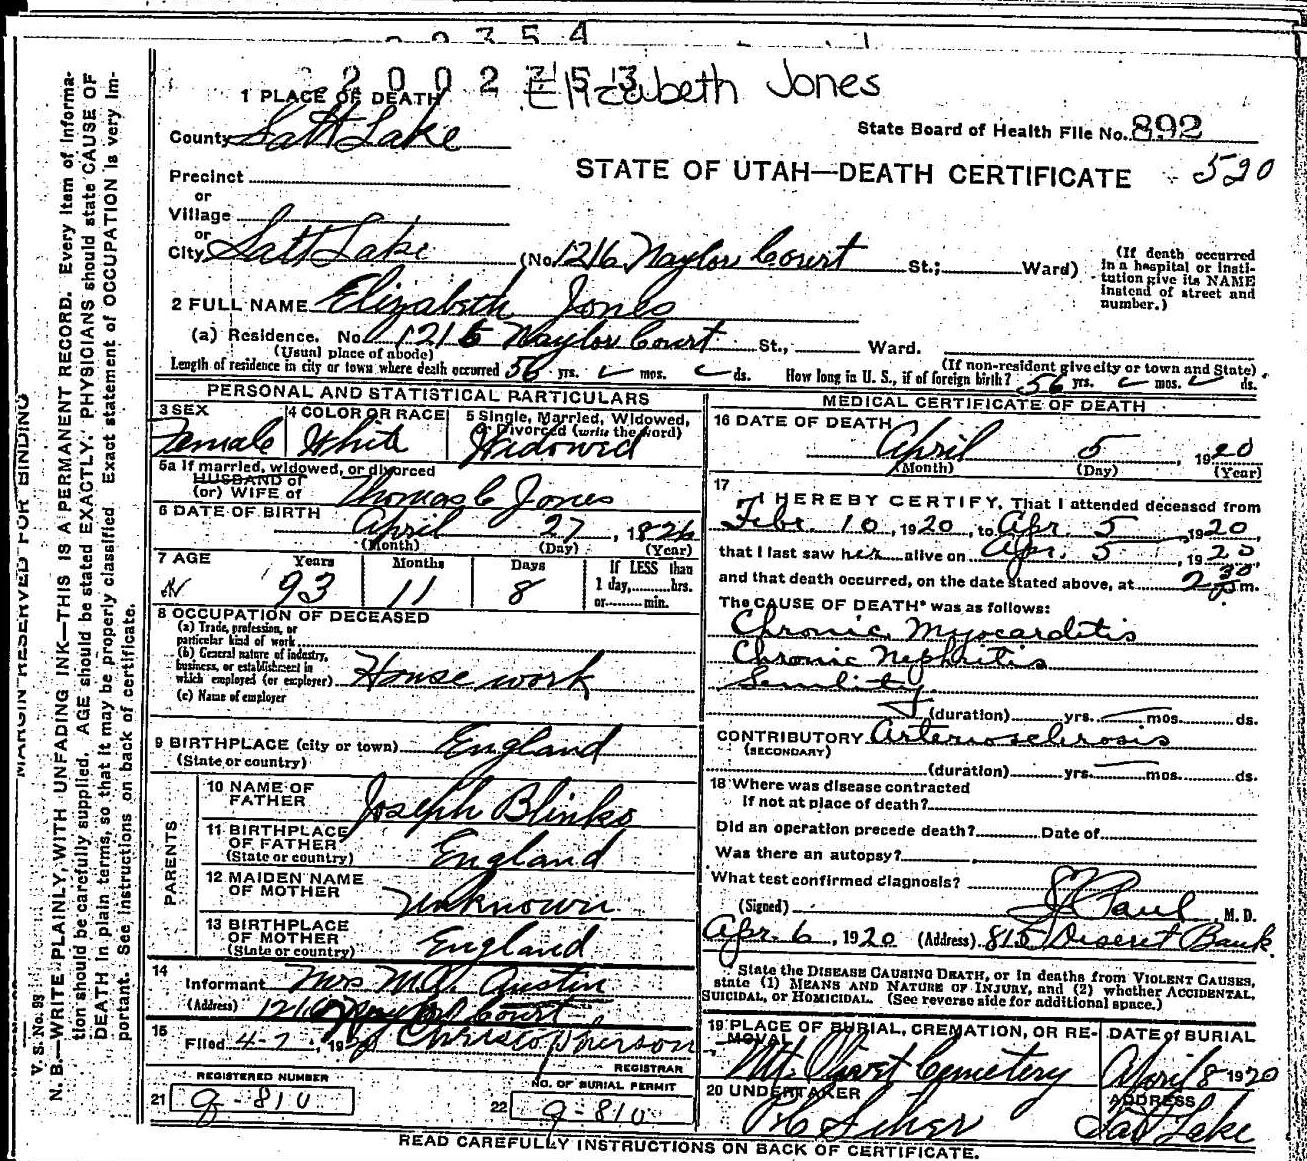 2 2 3 5 4
2 0 0 2 7 5 3 Elizabeth Jones
1 PLACE OF DEATH
County Salt Lake
State Board of Health File No. 892
STATE OF UTAH—DEATH CERTIFICATE - 520
Precinct
or
Village
or
City Salt Lake (No. 1216 Naylor Court St.; Ward)
(If death occurred in a hospital or institution give its NAME instead of street and number.)
2 FULL NAME Elizabeth Jones
(a) Residence. No. 1216 Naylor Court St., Ward.
(Usual place of abode) (If non-resident give city or town and State)
Length of residence in city or town where death occurred 56 yrs. mos. ds. How long in U. S., if of foreign birth? 56 yrs. mos. ds.
PERSONAL AND STATISTICAL PARTICULARS
3 SEX Female
4 COLOR OR RACE White
5 Single, Married, Widowed, or Divorced (write the word) Widowed
5a If married, widowed, or divorced
HUSBAND of
(or) WIFE of Thomas C Jones
6 DATE OF BIRTH April 27, 1826
(Month) (Day) (Year)
7 AGE Years Months Days If LESS than
93 11 8 1 day, hrs.
or min.
8 OCCUPATION OF DECEASED
(a) Trade, profession, or particular kind of work
(b) General nature of industry, business, or establishment in which employed (or employer) House work
(c) Name of employer
9 BIRTHPLACE (city or town) England
(State or country)
PARENTS
10 NAME OF FATHER Joseph Blinks
11 BIRTHPLACE OF FATHER England
(State or country)
12 MAIDEN NAME OF MOTHER Unknown
13 BIRTHPLACE OF MOTHER England
(State or country)
14 Informant Mrs M. A. Austin
(Address) 1216 Naylor Court
15 Filed 4-7, 1920
REGISTRAR
REGISTERED NUMBER
21 9-810
NO. OF BURIAL PERMIT
22 9-810
MEDICAL CERTIFICATE OF DEATH
16 DATE OF DEATH
April 5, 1920
(Month) (Day) (Year)
17 I HEREBY CERTIFY, That I attended deceased from
Febr. 10, 1920, to Apr. 5, 1920,
that I last saw her alive on Apr. 5, 1920,
and that death occurred, on the date stated above, at 2 30 p m.
The CAUSE OF DEATH* was as follows:
Chronic Myocarditis
Chronic Nephritis
Senility
(duration) yrs. mos. ds.
CONTRIBUTORY Arteriosclerosis
(SECONDARY)
(duration) yrs. mos. ds.
18 Where was disease contracted
if not at place of death?
Did an operation precede death? Date of
Was there an autopsy?
What test confirmed diagnosis?
(Signed) Paul M. D.
Apr. 6, 1920 (Address) 815 Deseret Bank
State the DISEASE CAUSING DEATH, or in deaths from VIOLENT CAUSES,
state (1) MEANS AND NATURE OF INJURY, and (2) whether ACCIDENTAL,
SUICIDAL, or HOMICIDAL. (See reverse side for additional space.)
19 PLACE OF BURIAL, CREMATION, OR REMOVAL Mt. Olivet Cemetery
DATE of BURIAL April 8 1920
20 UNDERTAKER
ADDRESS Salt Lake
READ CAREFULLY INSTRUCTIONS ON BACK OF CERTIFICATE.
MARGIN RESERVED FOR BINDING
V. S. No. 93
N. B.—WRITE PLAINLY, WITH UNFADING INK—THIS IS A PERMANENT RECORD. Every item of informa-
tion should be carefully supplied. AGE should be stated EXACTLY. PHYSICIANS should state CAUSE OF
DEATH in plain terms, so that it may be properly classified. Exact statement of OCCUPATION is very im-
portant. See instructions on back of certificate.